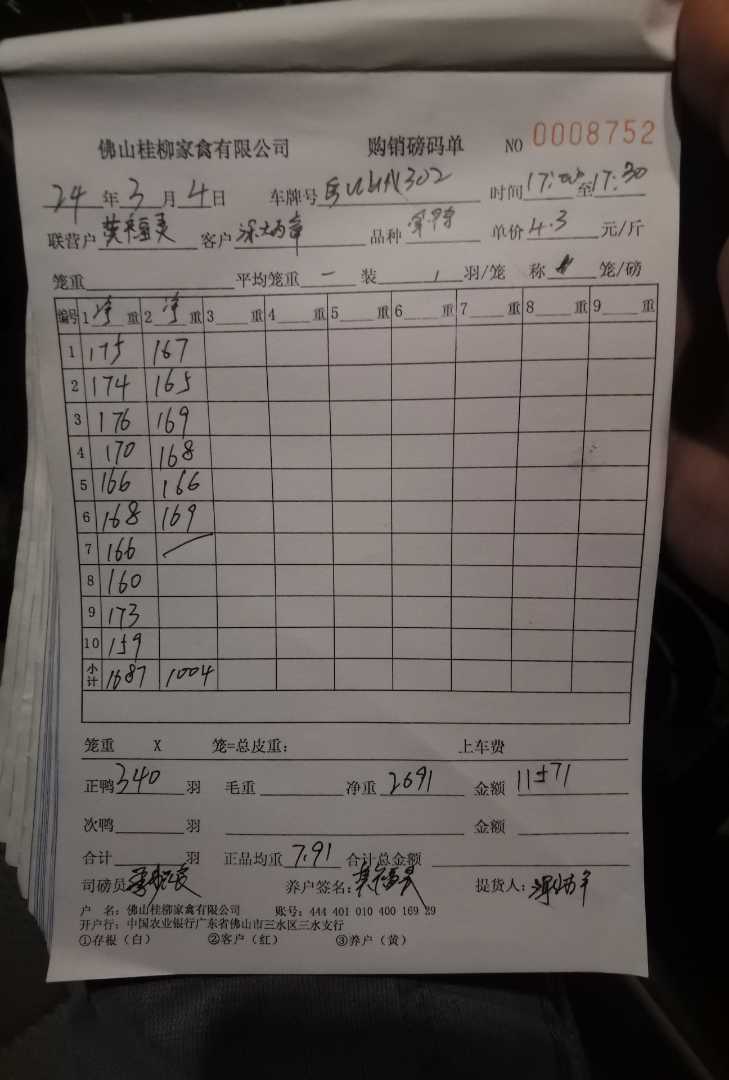 佛山桂柳家禽有限公司 购销磅码单 NO 0008752
24 年 3 月 4 日 车牌号 302 时间 17:00 至 17:30
联营户 客户 品种 单价 4.3 元/斤
笼重 平均笼重 一 装 / 羽/笼 称 笼/磅
编号 1 净 重 2 净 重 3 重 4 重 5 重 6 重 7 重 8 重 9 重
1 175 167
2 174 165
3 176 169
4 170 168
5 166 166
6 168 169
7 166
8 160
9 173
10 159
小计 1687 1004
笼重 X 笼=总皮重: 上车费
正鸭 340 羽 毛重 净重 2691 金额 11571
次鸭 羽 金额
合计 羽 正品均重 7.91 合计总金额
司磅员 养户签名: 提货人:
户 名: 佛山桂柳家禽有限公司 账号: 444 401 010 400 169 29
开户行: 中国农业银行广东省佛山市三水区三水支行
①存根(白) ②客户(红) ③养户(黄)